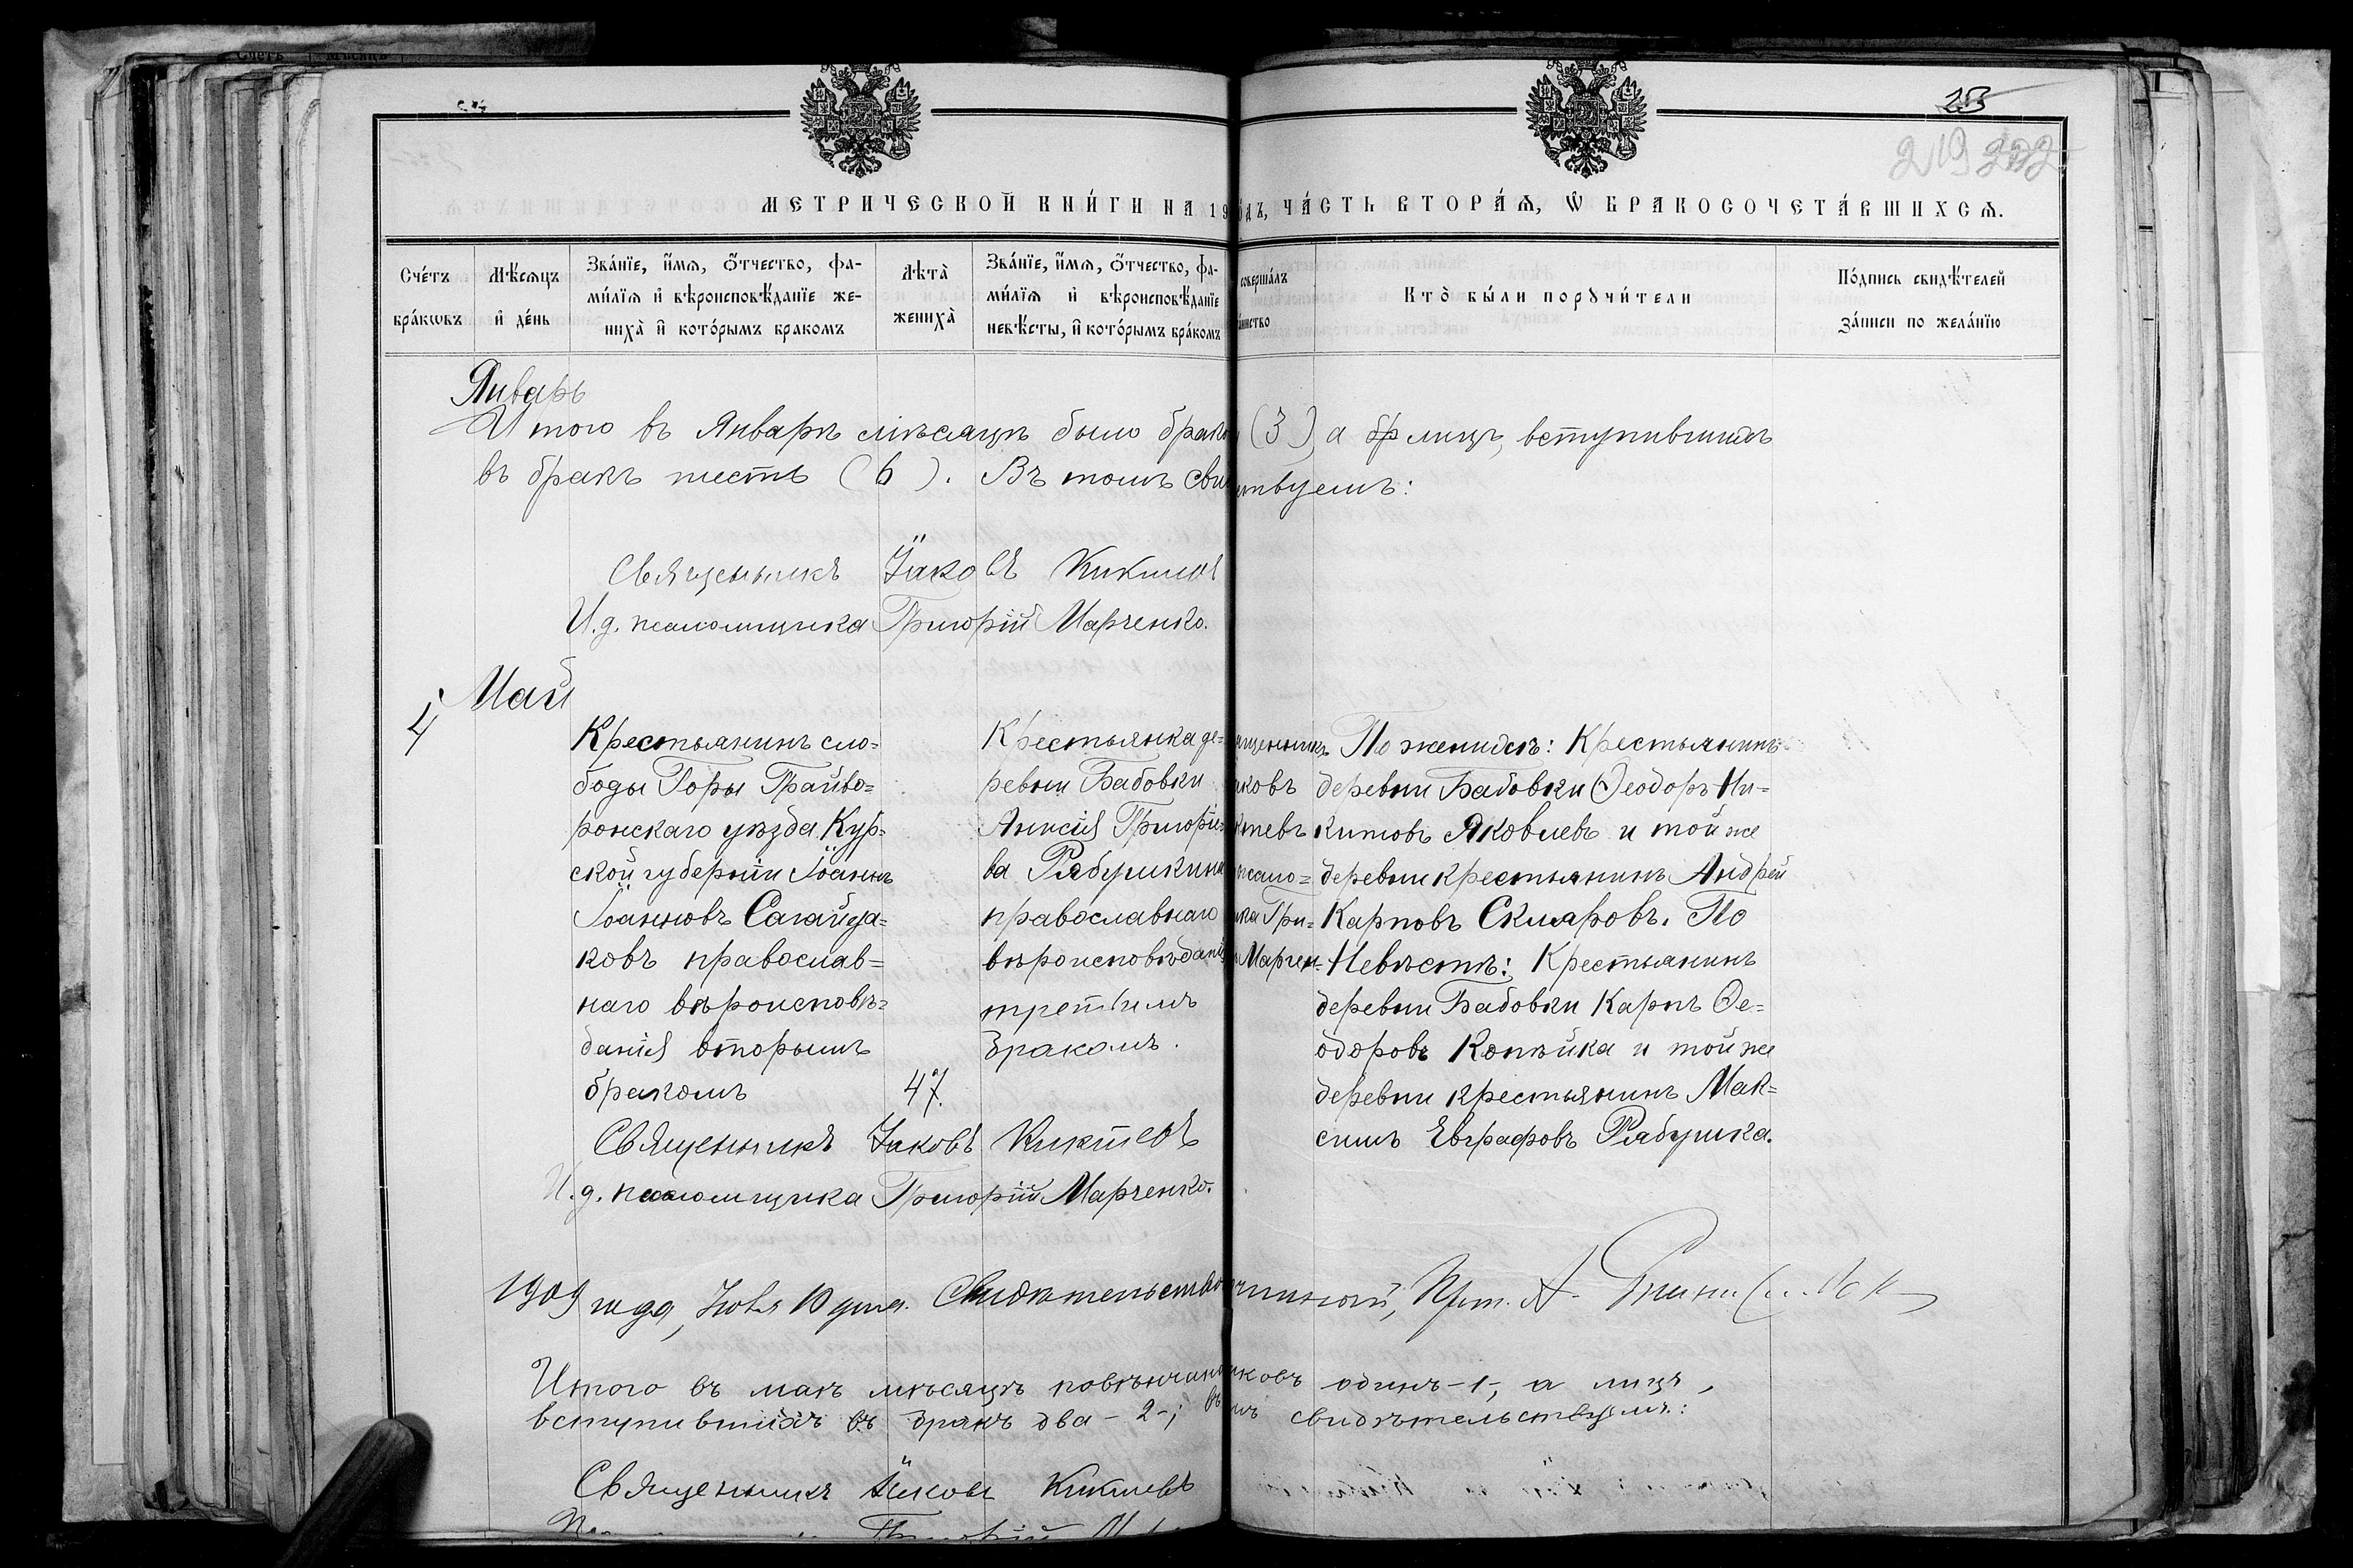 23
219 222
МЕТРИЧЕСКОЙ КНИ́ГИ НА 19
ОДЪ, ЧА́СТЬ ВТОРА́Ѧ, Ѡ БРАКОСОЧЕТА́ВШИХСѦ.
Сче́тъ
бра́кѡвъ
Мѣ́сѧцъ
и҆ де́нь
Зва́нїе, и҆́мѧ, ѻ҆́тчество, фа-
ми́лїѧ и҆ вѣроисповѣ́данїе же-
ниха̀ и҆ кото́рымъ бракомъ
Лѣта̀
жениха̀
Зва́нїе, и҆́мѧ, ѻ҆́тчество, фа-
ми́лїѧ и҆ вѣроисповѣ́данїе
невѣ́сты, и҆ кото́рымъ бра́комъ
соверша́лъ
инство
Кто̀ бы́ли порꙋчи́тели
По́дпись свидѣ́телей
за́писи по жела́нїю
Январь
Итого въ Январѣ мѣсяцѣ было брако (3), а бр лицъ, вступившихъ
въ бракъ шесть (6). Въ томъ сви твуемъ:
Священникъ Іаковъ Киктевъ
И.д. псаломщика Григорій Марченко.
Май
4
Крестьянинъ сло=
боды Горы Грайво=
ронскаго уѣзда Кур=
ской губерніи Іоаннъ
Іоанновъ Сагайда=
ковъ православ=
наго вѣроисповѣ=
данія вторымъ
бракомъ
47.
Крестьянка де=
ревни Бабовки
Анисія Григоріе=
ва Рябушкина
православнаго
вѣроисповѣданія
третьимъ
бракомъ.
ященникъ
ковъ
ктевъ
псало=
ика Гри=
Марчен=
По женихѣ: Крестьянинъ
деревни Бабовки Ѳеодоръ Ни=
китовъ Яковлевъ и той же
деревни крестьянинъ Андрей
Карповъ Скляровъ. По
Невѣстѣ: Крестьянинъ
деревни Бабовки Карпъ Ѳе=
одоровъ Копѣйка и той же
деревни крестьянинъ Мак=
симъ Евграфовъ Рябушка.
Священникъ Іаковъ Киктевъ
И.д. псаломщика Григорій Марченко.
1909 года, 10 дня. Свидѣтельство Прот. А.
Итого въ маѣ мѣсяцѣ повѣнчан ковъ одинъ -1-, а лицъ,
вступившихъ въ бракъ два -2-; въ мъ свидѣтельствуемъ:
Священникъ Іаковъ Киктевъ
Григорій